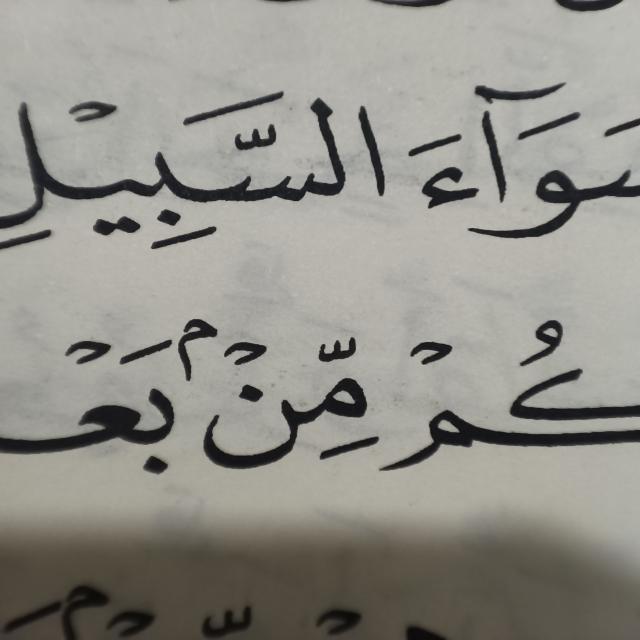 سَوَآءَ السَّبِيْلِ
كُمْ مِّنْۢ بَعْ